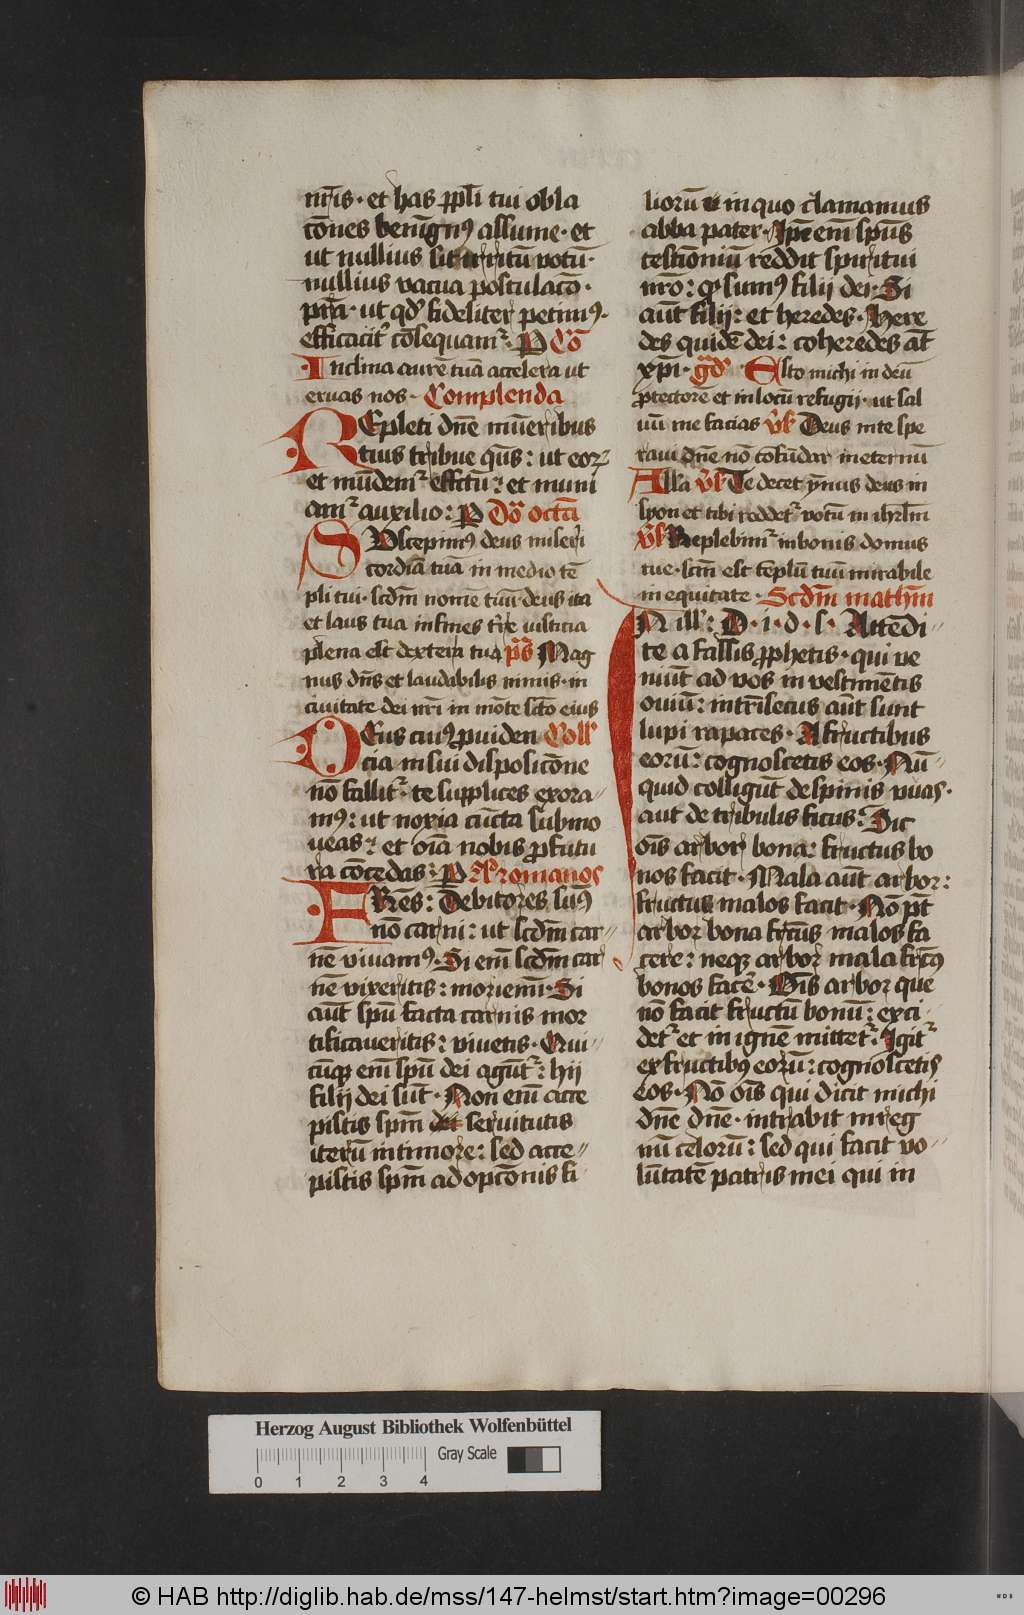 nr̄is · et has ppl̄i tui obla
cōnes benīgnꝰ assume · et
ut nullius sit irritū votū ·
nullius vacua postulacō ·
pr̄a · ut qd̕ fideliter petimꝰ ·
efficacit̕ cōsequam᷑ · P Cō
Inclina aurē tuā accelera ut
eruas nos · Complenda
REpleti dn̄e mūeribus
tuis tribue qs̄ : ut eoꝝ
et mūdem᷑ effctū : et muni
am᷑ auxilio : P Dō octā
SUscepimꝰ deus miseri
cordiā tuā in medio tē
pli tui · scd̄m nomē tuū · deus ita
et laus tua in fines tr̄e iusticia
plena est dextera tua p̄s Mag
nus dn̄s et laudabilis nimis · in
ciuitate dei nr̄i in mōte sc̄to eius
DEus cuiꝰ ꝓuiden Coll̄
cia in sui disposicōne
nō fallit᷑ · te supplices exora
mꝰ : ut noxia cūcta submo
ueas : et oīa nobis ꝓfutu
ra cōcedas : P Ad romanos
FRēs : Debitores sumꝰ
nō carni : ut scd̄m car
nē viuamꝰ · Si enī scd̄m car
nē vixeritis : moriemī · Si
aūt spū facta carnis mor
tificaueritis : viuetis · Qui
cūqꝫ enī spū dei agūt᷑ : hii
filij dei sūt · Non enī acce
pistis spm̄ servitutis
iterū in timore : sed acce
pistis spm̄ adopcōnis fi
liorū in quo clamamus
abba pater · Ipē enī spūs
testīoniū reddit spiritui
nrō : qͥ sumꝰ filij dei · Si
aūt filij : et heredes · Here
des quidē dei : coheredes āt
xp̄i · gd̄ Esto michi in deū
ꝓtectorē et in locū refugii · ut sal
uū me facias v̄s Deus in te spe
raui dn̄e nō cōfūdar in eternū
All̄a v̄s Te decet ymnus deus in
syon et tibi reddet᷑ votū in ihrl̄m
v̄s Replebim᷑ in bonis domus
tue · scm̄ est tēplū tuū mirabile
in equitate · Scd̄m mathm̄
IN ill̄ : D · i · d · s · Attēdi
te a falsis ꝓphetis · qui ve
niūt ad vos in vestimētis
ouiū : intrīsecus aūt sunt
lupi rapaces · A fructibus
eorū : cognoscetis eos · Nū
quid colligūt de spinis vuas ·
aut de tribulis ficus : Sic
oīs arbor bona : fructus bo
nos facit · Mala aūt arbor :
fructus malos facit · Nō pt̄
arbor bona frūs malos fa
cere : neqꝫ arbor mala frcꝰ
bonos facē · Oīs arbor que
nō facit fructū bonū : exci
det᷑ et in ignē mittet᷑ · Igit᷑
ex fructibꝰ eorū : cognoscetis
eos · Nō oīs qui dicit michi
dn̄e dn̄e · intrabit in reg
nū celorū : sed qui facit vo
lūtatē patris mei qui in
Herzog August Bibliothek Wolfenbüttel
Gray Scale
0 1 2 3 4
© HAB http://diglib.hab.de/mss/147-helmst/start.htm?image=00296